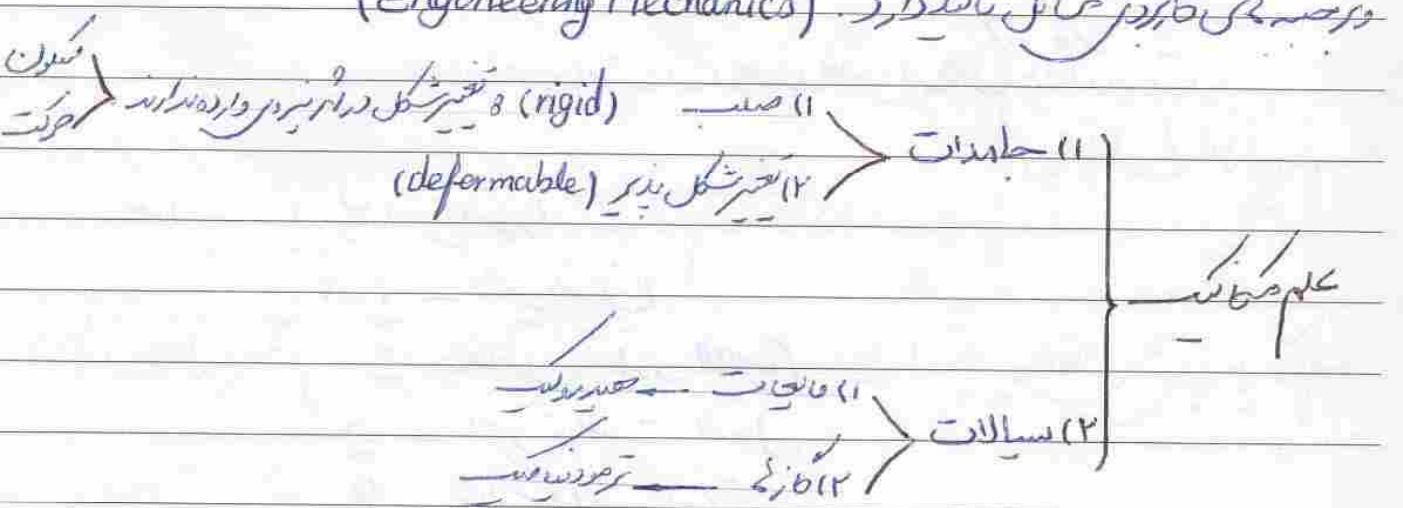 و بر جنبه های کاربردی مسائل تاکید دارد. (Engineering Mechanics)
علم مکانیک
۱) جامدات
۱) صلب (rigid) : تغییر شکل در اثر نیروی وارده ندارند
سکون
حرکت
۲) تغییر شکل پذیر (deformable)
۲) سیالات
۱) مایعات ← هیدرولیک
۲) گازها ← ترمودینامیک